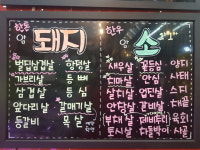 한돈 암 돼지
벌집삼겹살 항정살
가브리살 등뼈
삼겹살 등심
앞다리살 갈매기살
등갈비 목살
한우 암 소
새우살 꽃등심 양지
치마살 안심 사태
살치살 업진살 스지
안창살 갈비살
부채살 육회
토시살 차돌박이 사골